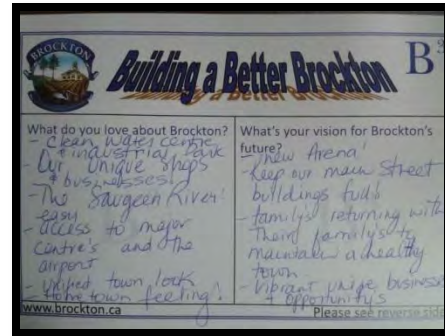 BROCKTON
Building a Better Brockton
B3
What do you love about Brockton?
- Clean Water centre
+ industrial Park
Our Unique Shops
+ businesses!
- The Saugeen River!
easy
- access to major
centre's and the
airport
- unified town look
- Home town feeling!
What's your vision for Brockton's
future?
- new Arena!
- Keep our main Street
buildings full!
- family's returning with
Their family's to
maintain a healthy
town
- vibrant unique business
+ opportunity's
www.brockton.ca
Please see reverse side